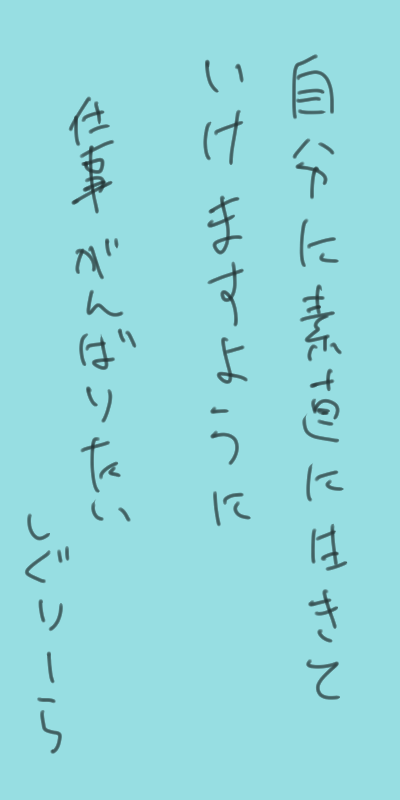 自分に素直に生きて
いけますように
仕事がんばりたい
しぐりーら